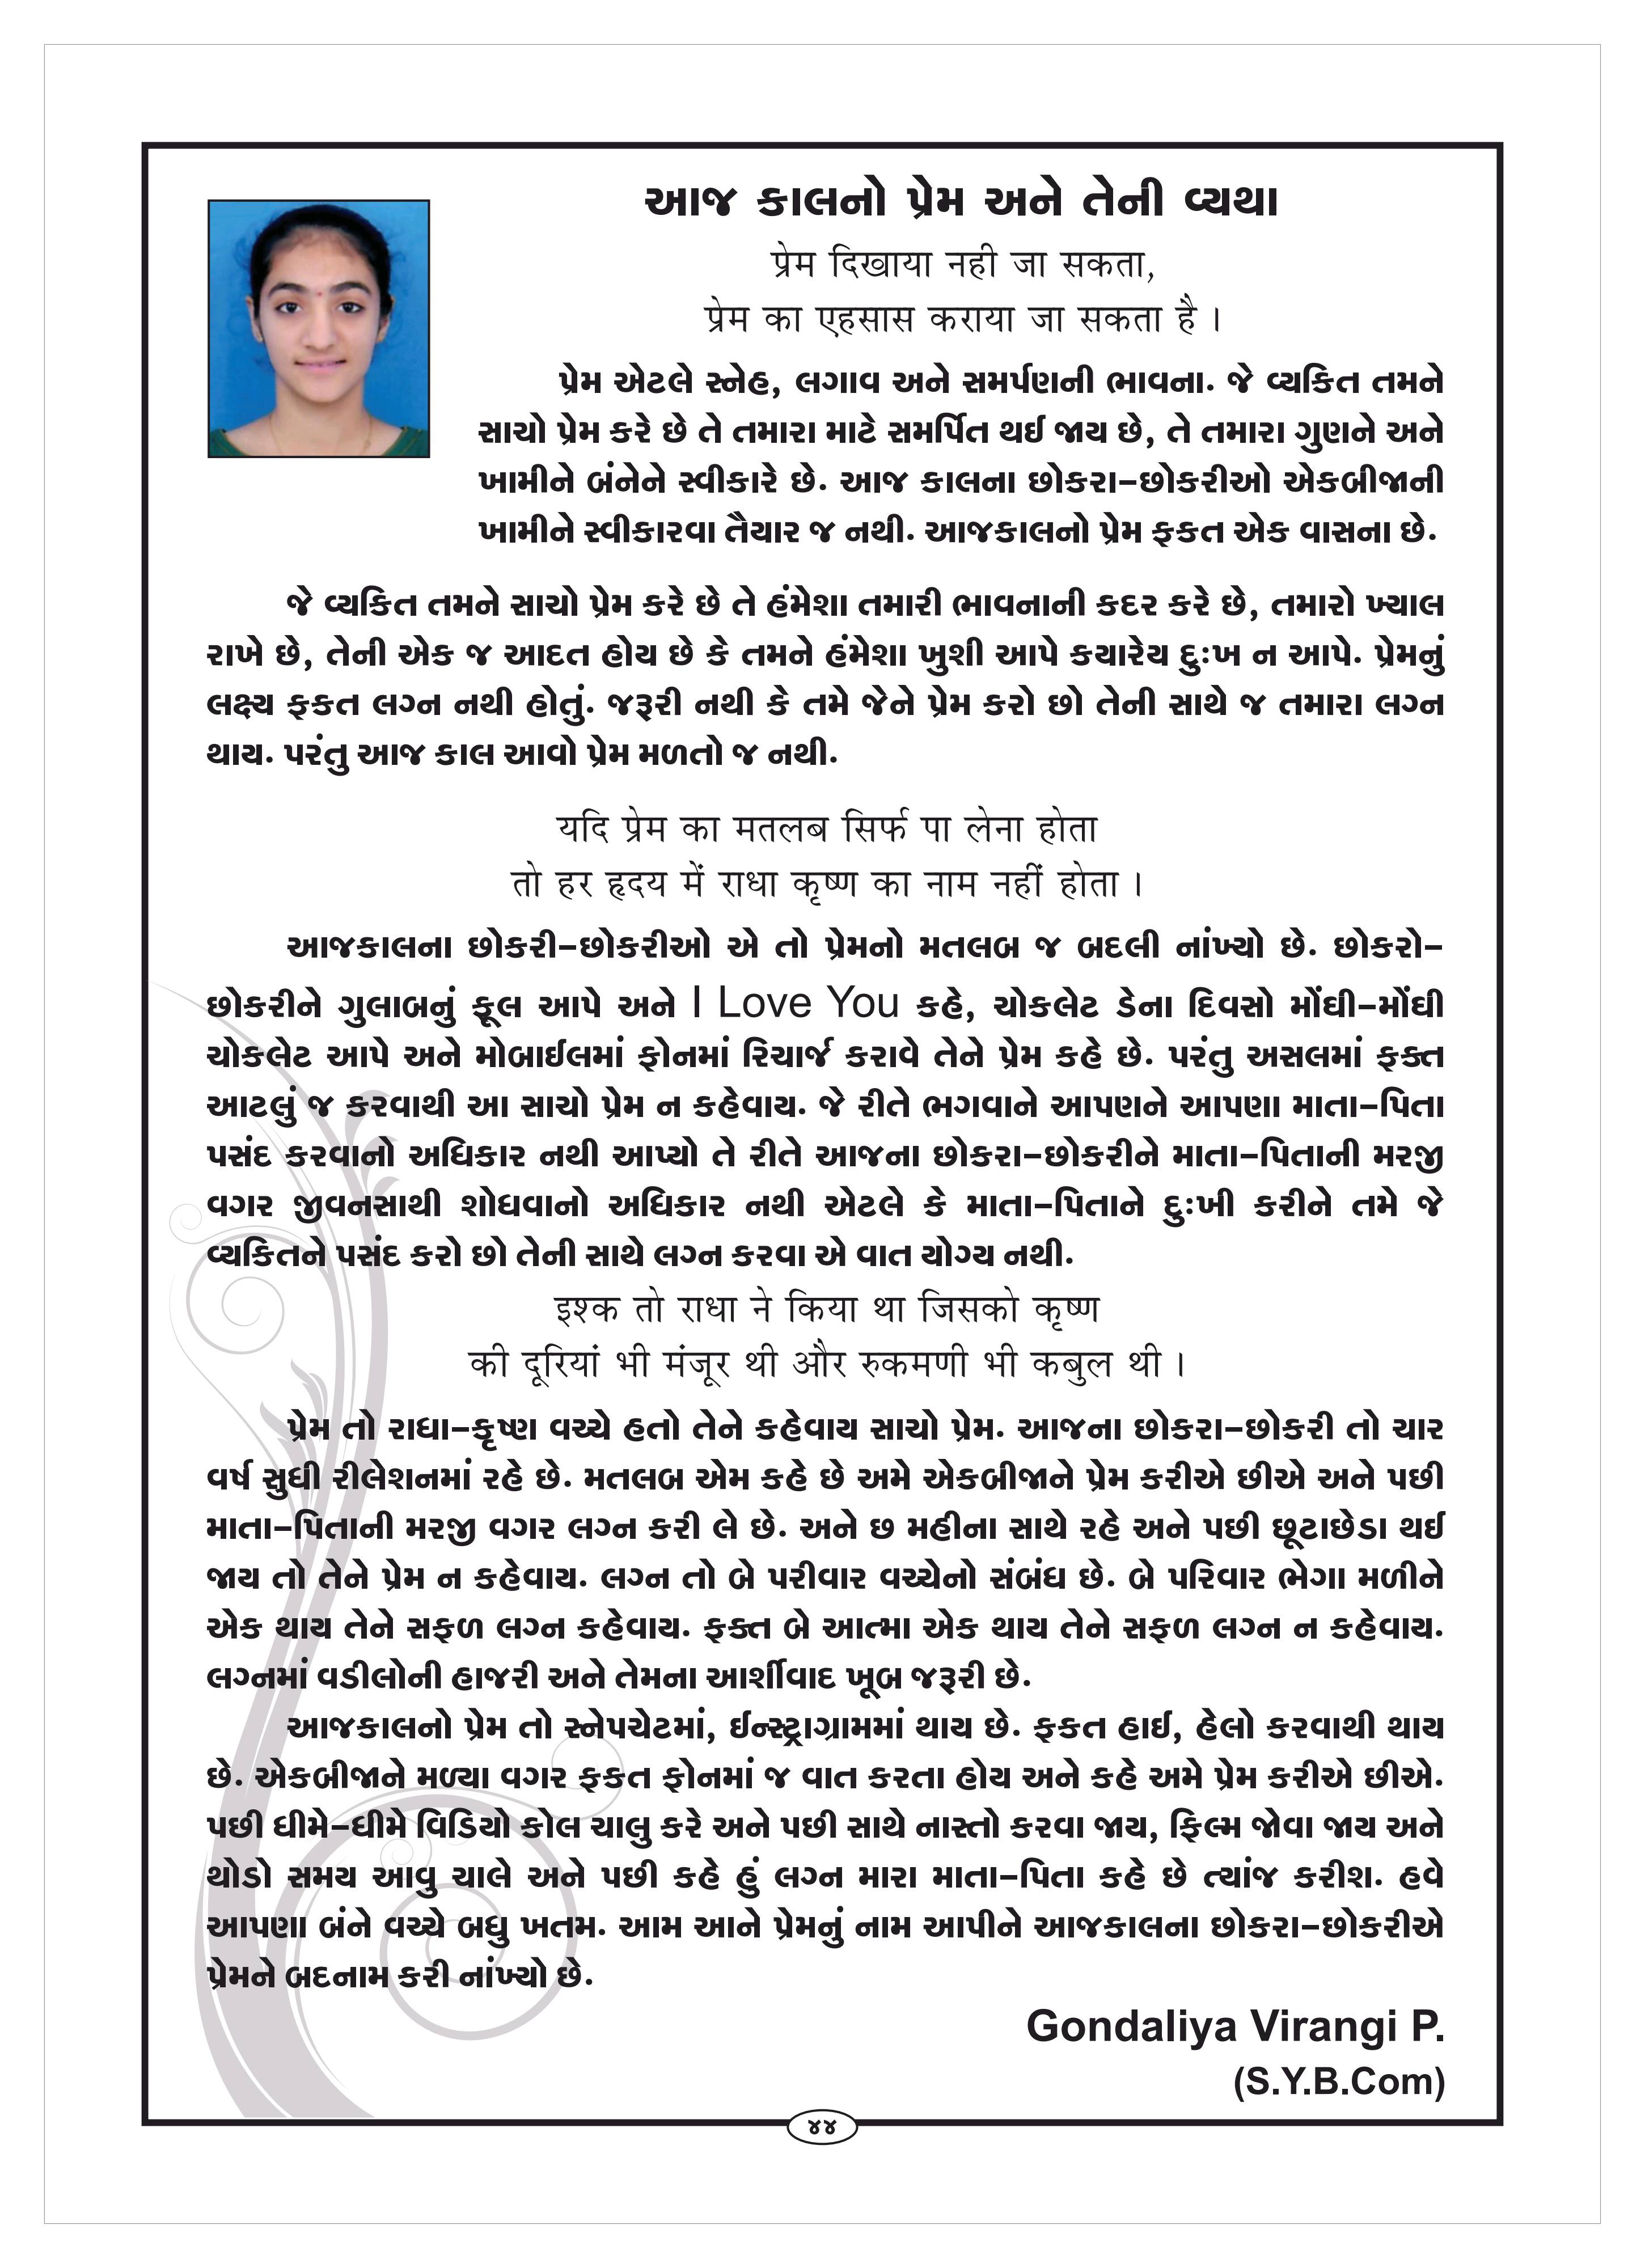 આજ કાલનો પ્રેમ અને તેની વ્યથા
प्रेम दिखाया नही जा सकता,
प्रेम का एहसास कराया जा सकता है ।
પ્રેમ એટલે સ્નેહ, લગાવ અને સમર્પણની ભાવના. જે વ્યકિત તમને
સાચો પ્રેમ કરે છે તે તમારા માટે સમર્પિત થઈ જાય છે, તે તમારા ગુણને અને
ખામીને બંનેને સ્વીકારે છે. આજ કાલના છોકરા-છોકરીઓ એકબીજાની
ખામીને સ્વીકારવા તૈયાર જ નથી. આજકાલનો પ્રેમ ફકત એક વાસના છે.
જે વ્યકિત તમને સાચો પ્રેમ કરે છે તે હંમેશા તમારી ભાવનાની કદર કરે છે, તમારો ખ્યાલ
રાખે છે, તેની એક જ આદત હોય છે કે તમને હંમેશા ખુશી આપે કયારેય દુઃખ ન આપે. પ્રેમનું
લક્ષ્ય ફકત લગ્ન નથી હોતું. જરૂરી નથી કે તમે જેને પ્રેમ કરો છો તેની સાથે જ તમારા લગ્ન
થાય. પરંતુ આજ કાલ આવો પ્રેમ મળતો જ નથી.
यदि प्रेम का मतलब सिर्फ पा लेना होता
तो हर हृदय में राधा कृष्ण का नाम नहीं होता ।
આજકાલના છોકરી-છોકરીઓ એ તો પ્રેમનો મતલબ જ બદલી નાંખ્યો છે. છોકરો-
છોકરીને ગુલાબનું ફૂલ આપે અને I Love You કહે, ચોકલેટ ડેના દિવસો મોંઘી-મોંઘી
ચોકલેટ આપે અને મોબાઈલમાં ફોનમાં રિચાર્જ કરાવે તેને પ્રેમ કહે છે. પરંતુ અસલમાં ફક્ત
આટલું જ કરવાથી આ સાચો પ્રેમ ન કહેવાય. જે રીતે ભગવાને આપણને આપણા માતા-પિતા
પસંદ કરવાનો અધિકાર નથી આપ્યો તે રીતે આજના છોકરા-છોકરીને માતા-પિતાની મરજી
વગર જીવનસાથી શોધવાનો અધિકાર નથી એટલે કે માતા-પિતાને દુઃખી કરીને તમે જે
વ્યકિતને પસંદ કરો છો તેની સાથે લગ્ન કરવા એ વાત યોગ્ય નથી.
इश्क तो राधा ने किया था जिसको कृष्ण
की दूरियां भी मंजूर थी और रुकमणी भी कबुल थी ।
પ્રેમ તો રાધા-કૃષ્ણ વચ્ચે હતો તેને કહેવાય સાચો પ્રેમ. આજના છોકરા-છોકરી તો ચાર
વર્ષ સુધી રીલેશનમાં રહે છે. મતલબ એમ કહે છે અમે એકબીજાને પ્રેમ કરીએ છીએ અને પછી
માતા-પિતાની મરજી વગર લગ્ન કરી લે છે. અને છ મહીના સાથે રહે અને પછી છૂટાછેડા થઈ
જાય તો તેને પ્રેમ ન કહેવાય. લગ્ન તો બે પરીવાર વચ્ચેનો સંબંધ છે. બે પરિવાર ભેગા મળીને
એક થાય તેને સફળ લગ્ન કહેવાય. ફક્ત બે આત્મા એક થાય તેને સફળ લગ્ન ન કહેવાય.
લગ્નમાં વડીલોની હાજરી અને તેમના આર્શીવાદ ખૂબ જરૂરી છે.
આજકાલનો પ્રેમ તો સ્નેપચેટમાં, ઈન્સ્ટ્રાગ્રામમાં થાય છે. ફકત હાઈ, હેલો કરવાથી થાય
છે. એકબીજાને મળ્યા વગર ફકત ફોનમાં જ વાત કરતા હોય અને કહે અમે પ્રેમ કરીએ છીએ.
પછી ધીમે-ધીમે વિડિયો કોલ ચાલુ કરે અને પછી સાથે નાસ્તો કરવા જાય, ફિલ્મ જોવા જાય અને
થોડો સમય આવુ ચાલે અને પછી કહે હું લગ્ન મારા માતા-પિતા કહે છે ત્યાંજ કરીશ. હવે
આપણા બંને વચ્ચે બધુ ખતમ. આમ આને પ્રેમનું નામ આપીને આજકાલના છોકરા-છોકરીએ
પ્રેમને બદનામ કરી નાંખ્યો છે.
Gondaliya Virangi P.
(S.Y.B.Com)
૪૪